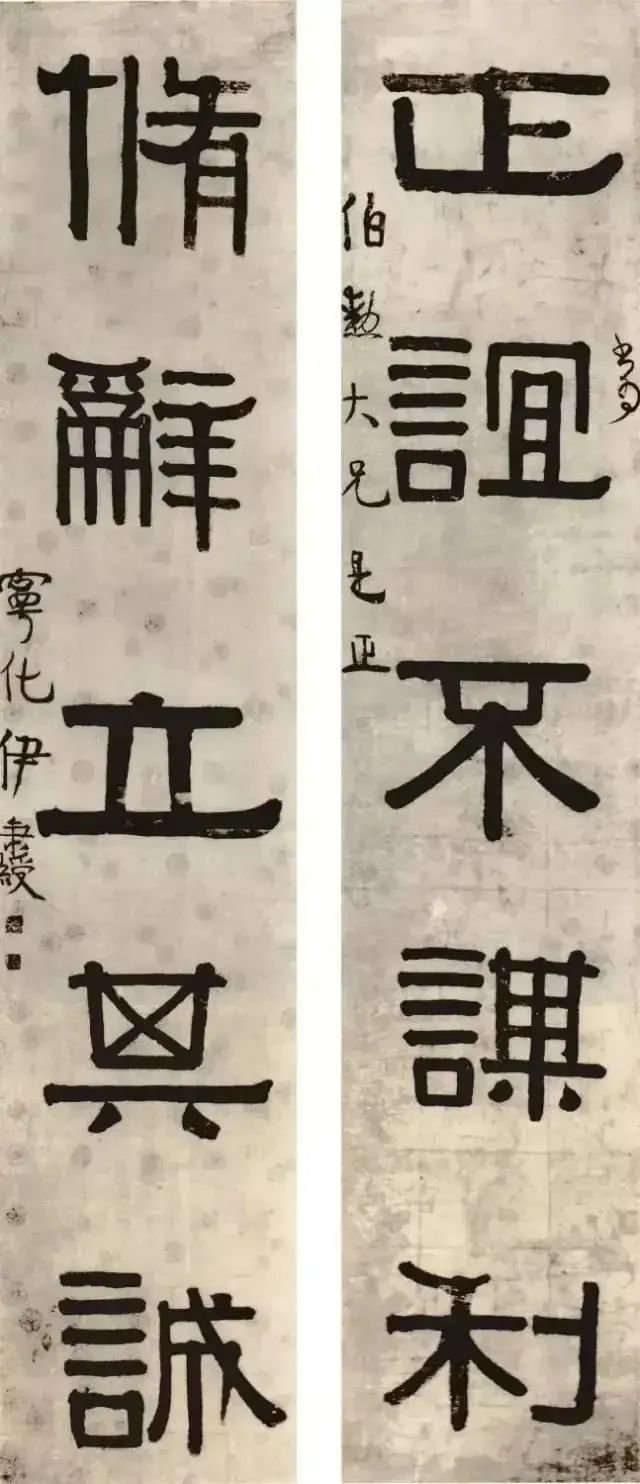 正誼不謀利
伯大兄是正
脩辭立其誠
寧化伊秉綬